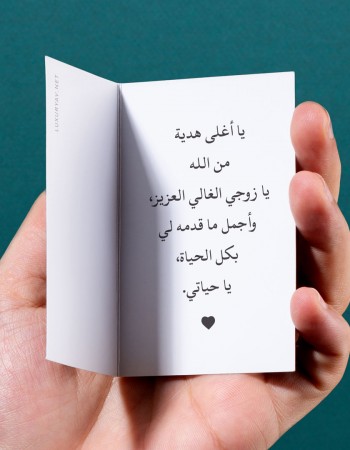 يا أغلى هدية
من الله
يا زوجي الغالي العزيز،
وأجمل ما قدمه لي
بكل الحياة،
يا حياتي.
LUXURYBY.NET